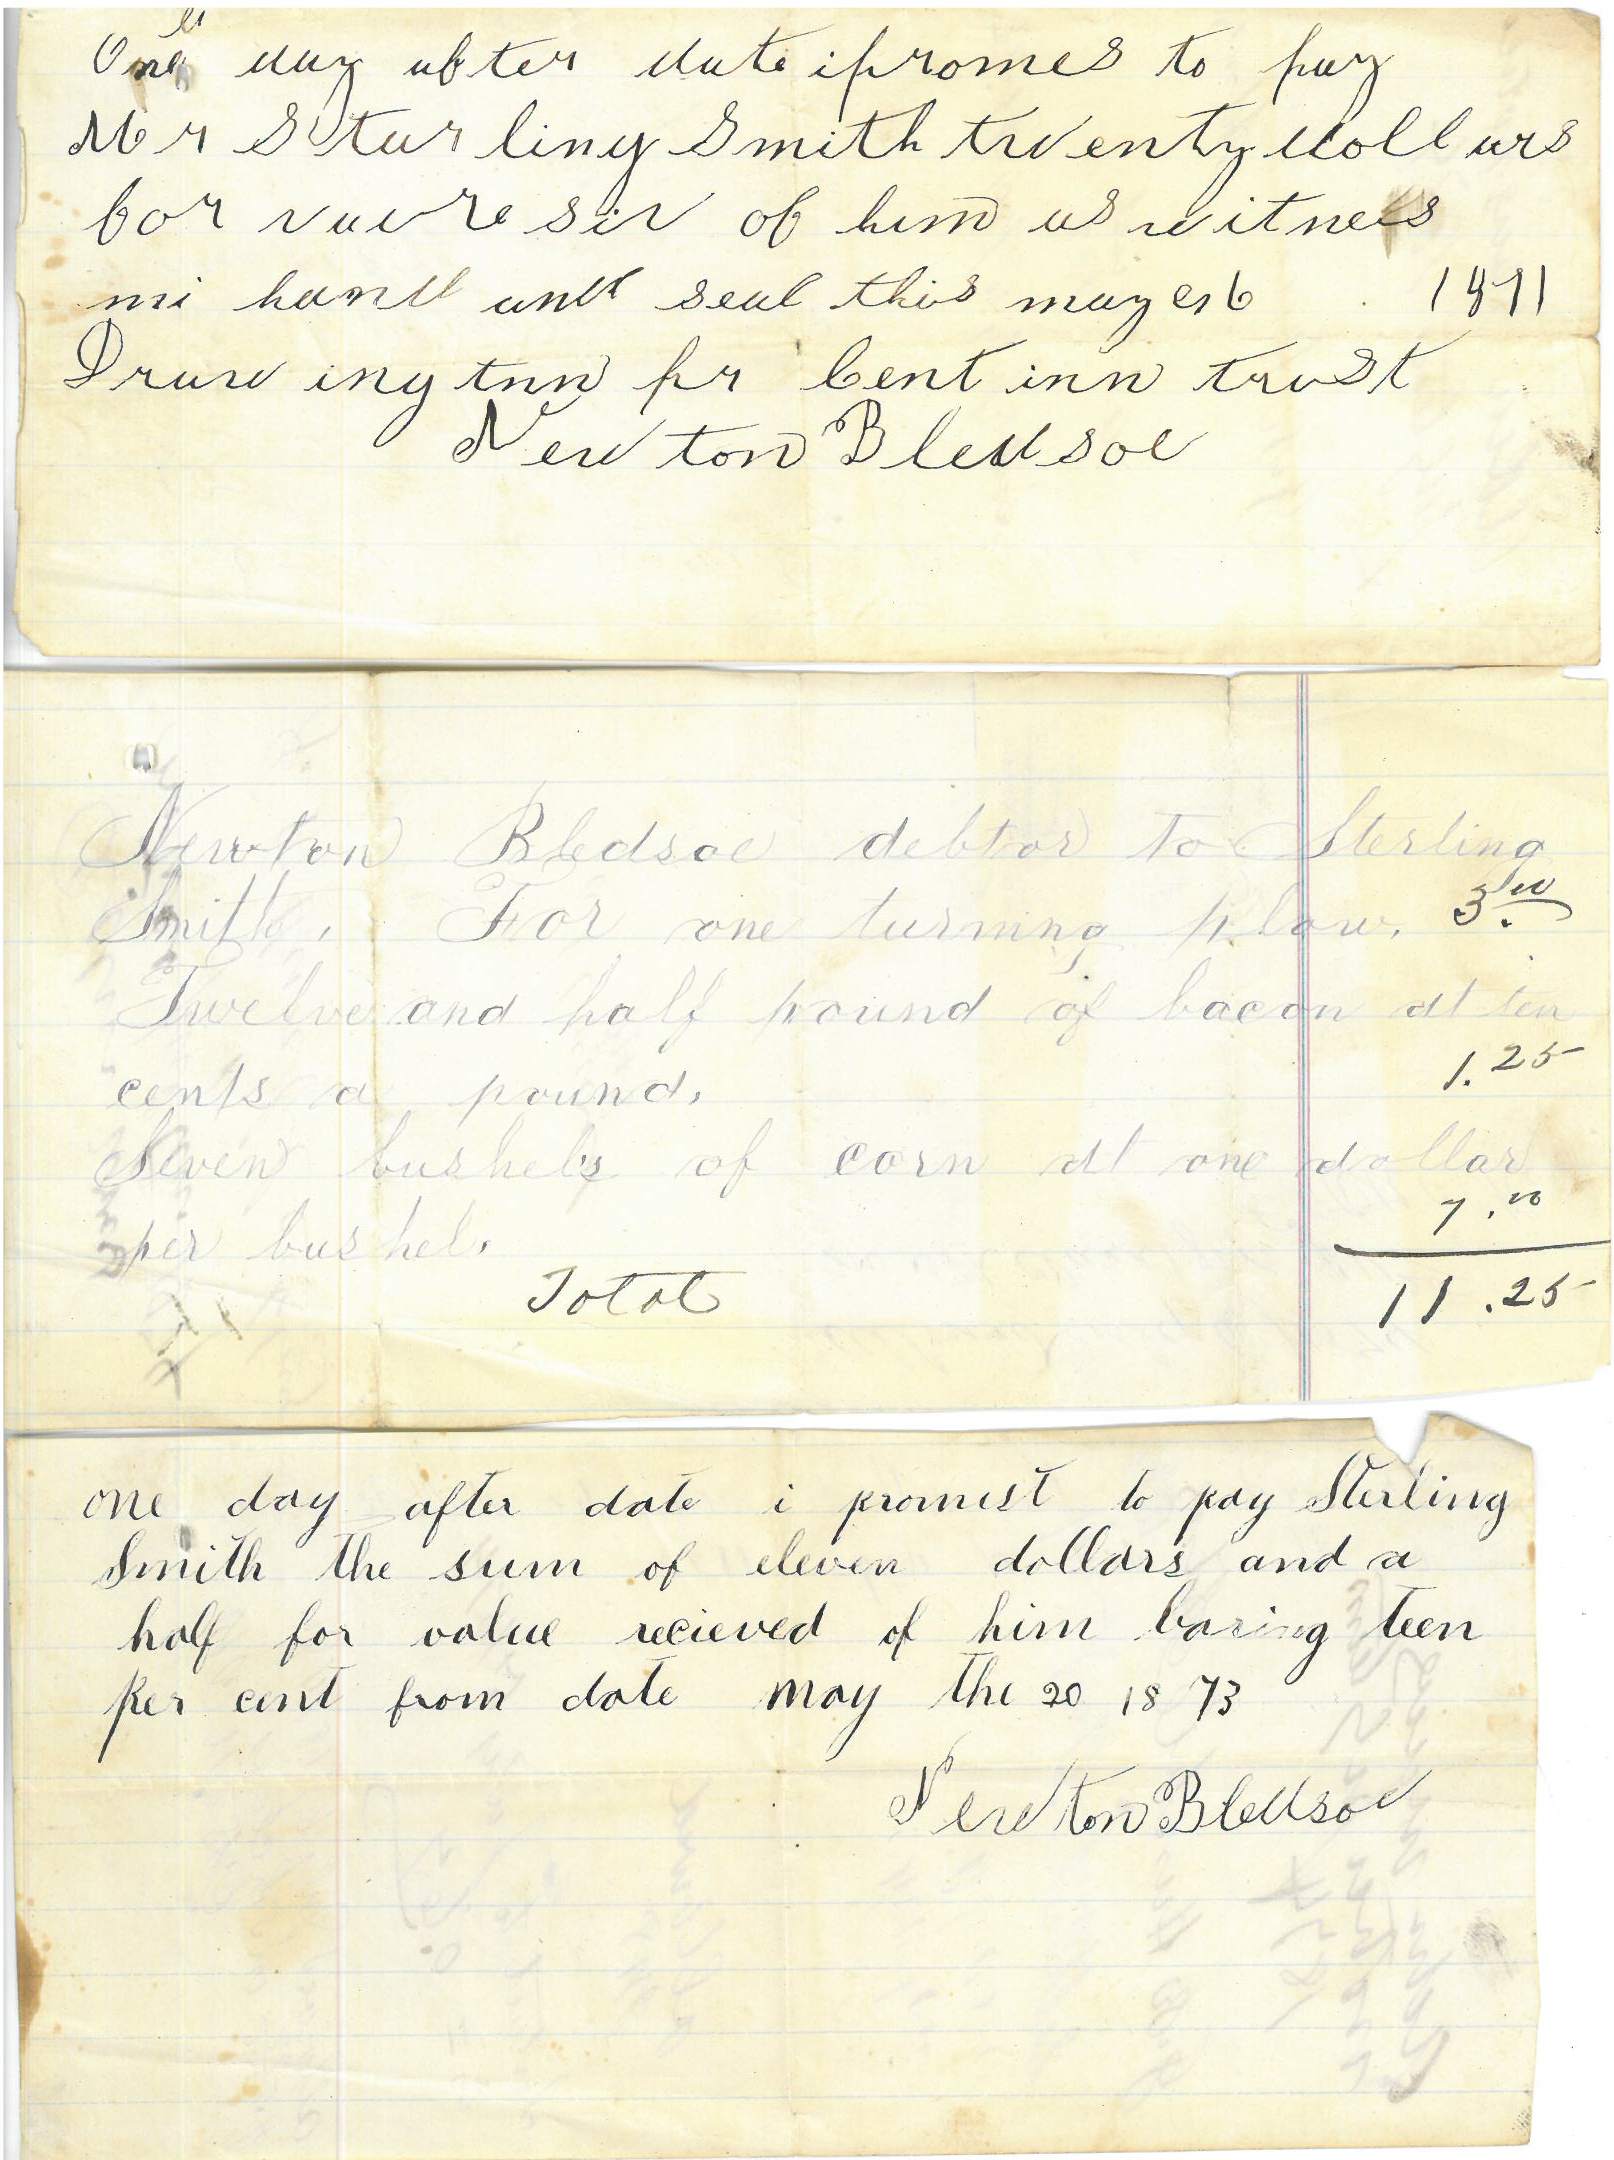 One day after date i promes to pay
Mr Starling Smith twenty dollars
for of him as witness
mi hand and seal this may 1871
Drawing tnn pr Cent inn trust
Newton Bledsoe
Newton Bledsoe debtor to Sterling
Smith. For one turning plow. 3.00
Twelve and half pound of bacon at ten
cents a pound. 1.25
Seven bushels of corn at one dollar
per bushel. 7.00
Total 11.25
one day after date i promist to pay Sterling
Smith the sum of eleven dollars and a
half for value recieved of him baring teen
per cent from date may the 20 1873
Newton Bledsoe